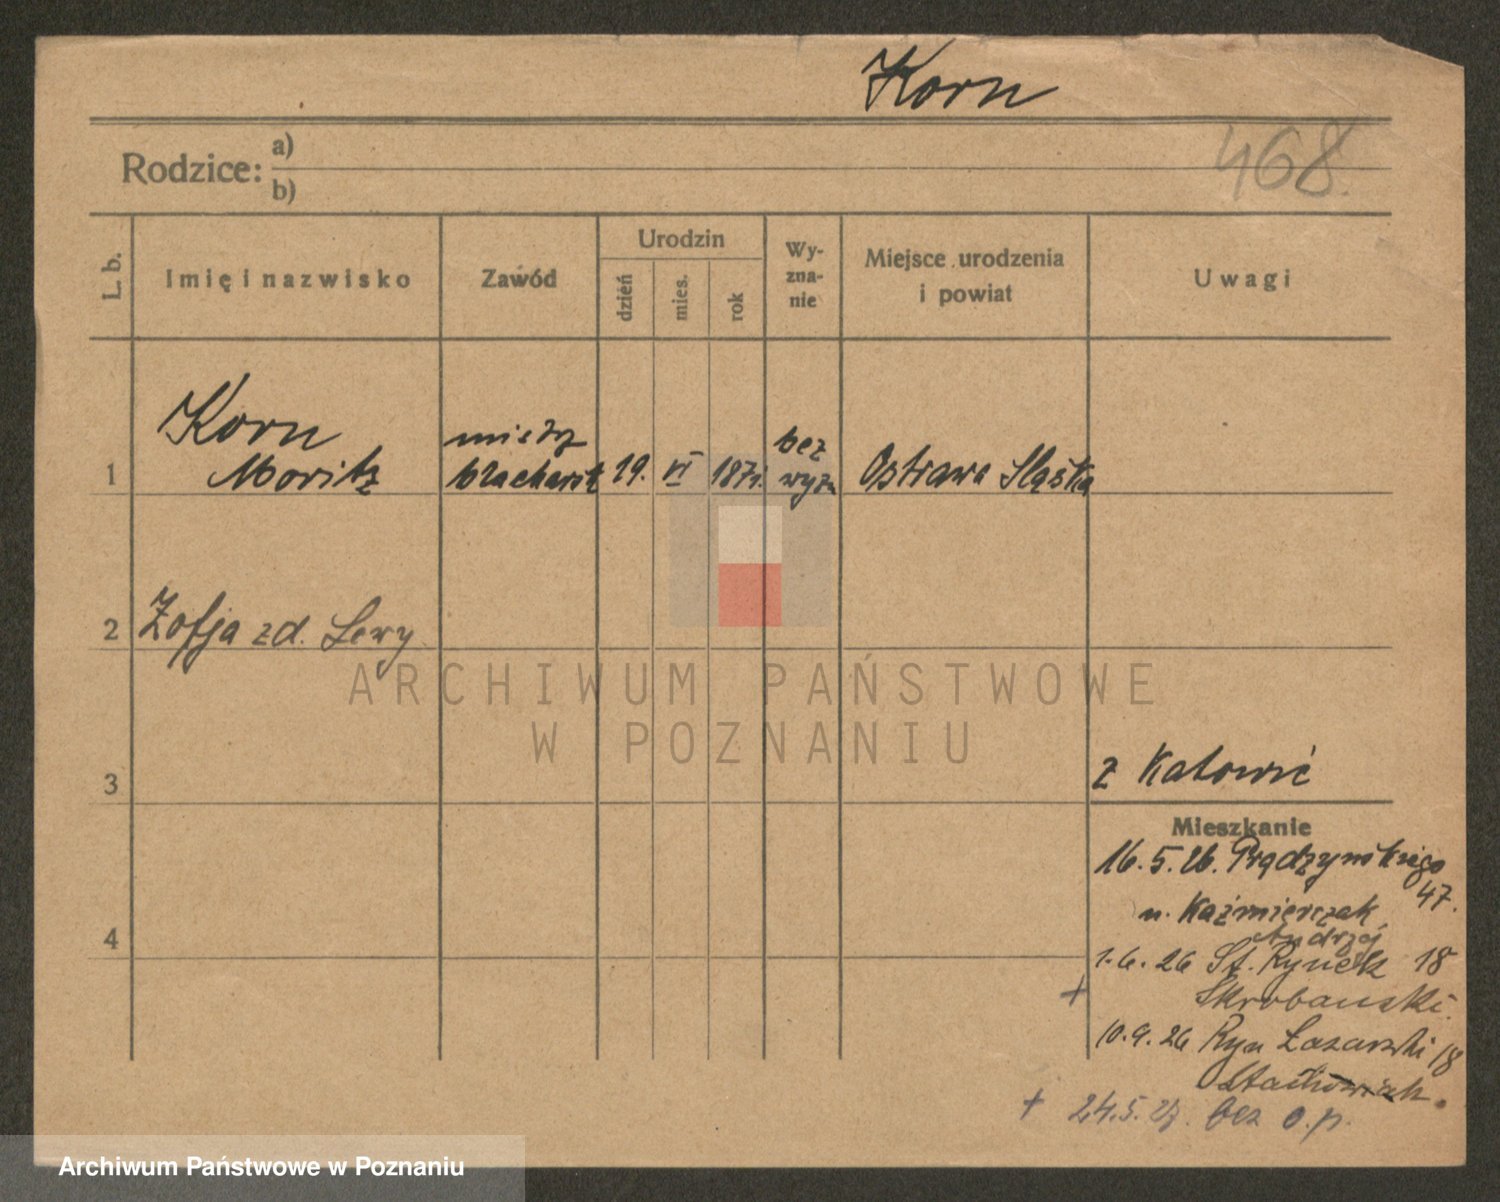 Korn
468.
Rodzice: a)
b)
L. b.
Imię i nazwisko
Zawód
Urodzin
dzień
mies.
rok
Wy-
zna-
nie
Miejsce urodzenia
i powiat
Uwagi
1
Korn
Moritz
mistrz
blacharsk
19.
VI
1871.
bez
wyzn
Ostrawa Śląska
2
Zofja zd. Lewy
ARCHIWUM PAŃSTWOWE
W POZNANIU
3
z Katowic
Mieszkanie
16.5.26. Prądzyńskiego
47.
u. Kaźmierczak
Andrzej
4
1.6.26 St. Rynek 18
+
Skrobański.
10.9.26 Ryn Łazarski 18
Stachowiak.
+ 24.5.27. bez o.p.
Archiwum Państwowe w Poznaniu